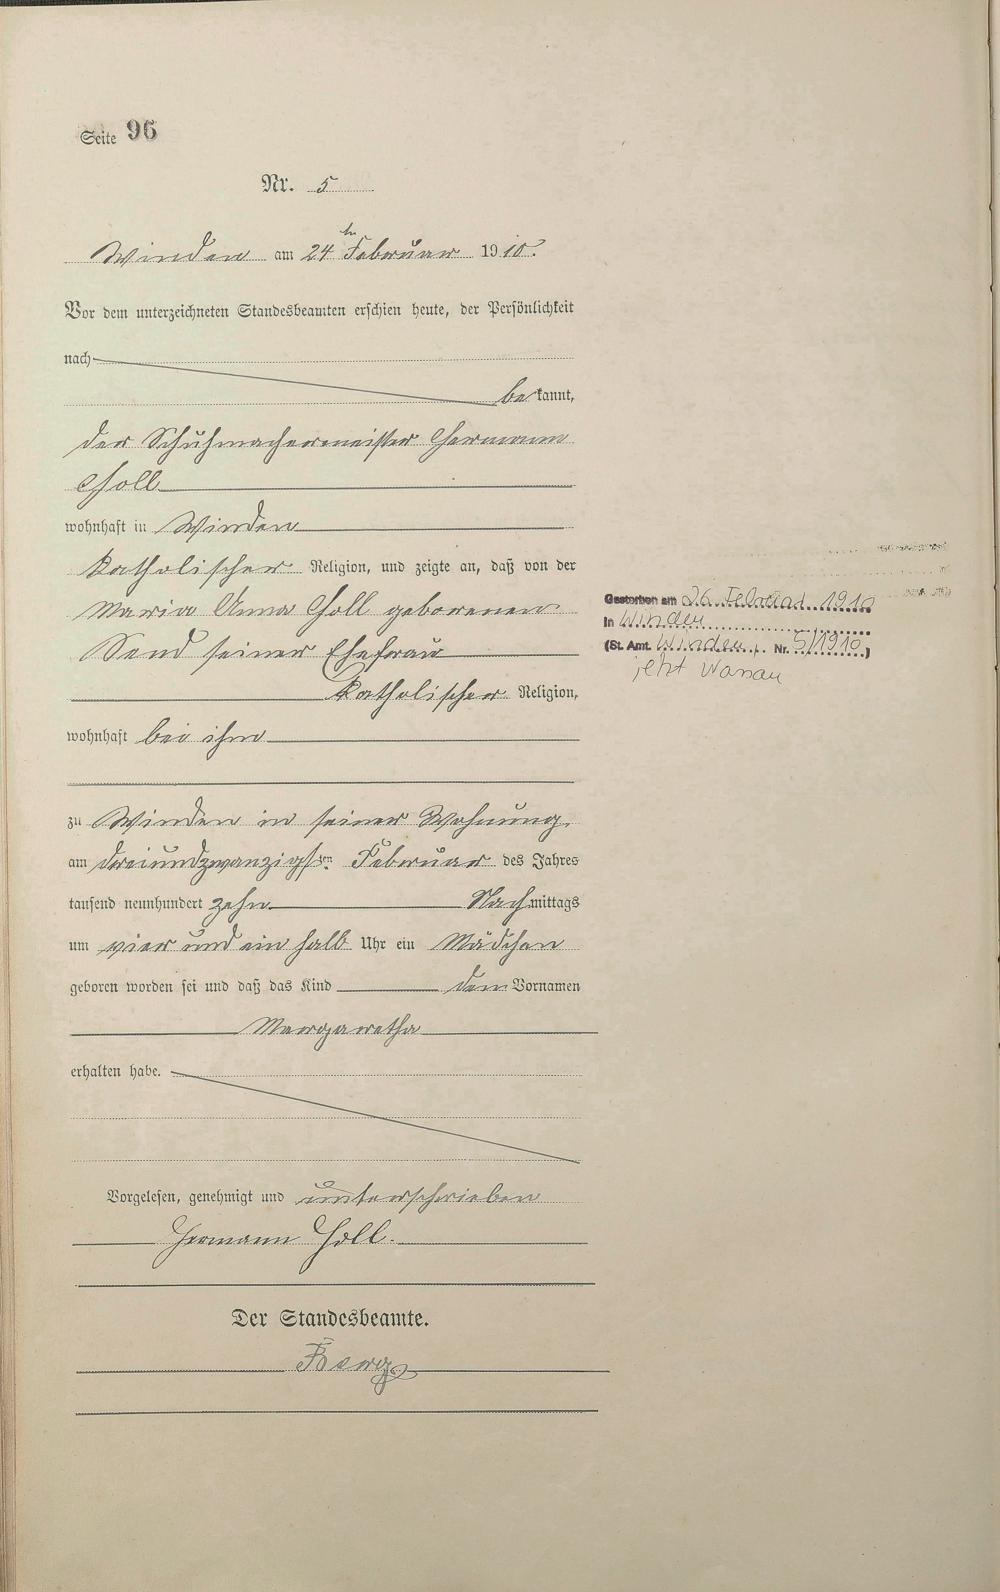 Seite 96
Nr. 5
Winden am 24ten Februar 1910.
Vor dem unterzeichneten Standesbeamten erschien heute, der Persönlichkeit
nach
bekannt,
der Schuhmachermeister Hermann
Holl
wohnhaft in Winden
katholischer Religion, und zeigte an, daß von der
Maria Anna Holl geborenen
Send seiner Ehefrau
katholischer Religion,
wohnhaft bei ihm
zu Winden in seiner Wohnung,
am dreiundzwanzigsten Februar des Jahres
tausend neunhundert zehn Nachmittags
um vier und ein halb Uhr ein Mädchen
geboren worden sei und daß das Kind den Vornamen
Margaretha
erhalten habe.
Vorgelesen, genehmigt und unterschrieben
Hermann Holl.
Der Standesbeamte.
Gestorben am 26. Februar 1910
in Winden
(St. Amt. Winden, Nr. 5/1910)
jetzt